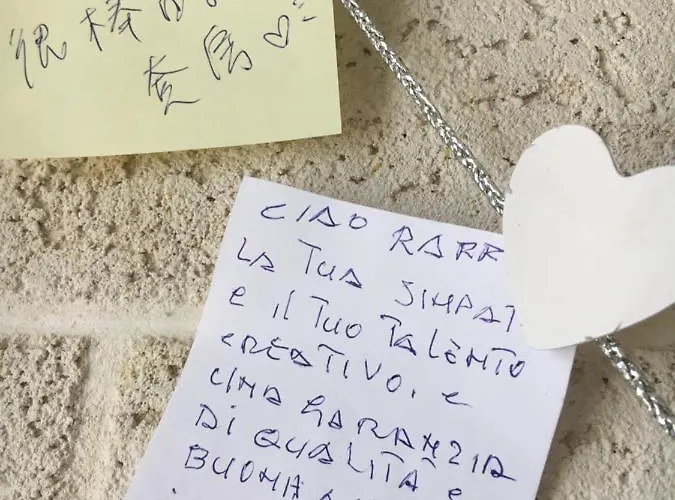 "很棒的
套房♡
CIAO RAFF
LA TUA SIMPAT
E IL TUO TALENTO
CREATIVO. E
UNA GARANZIA
DI QUALITÀ E
BUONA